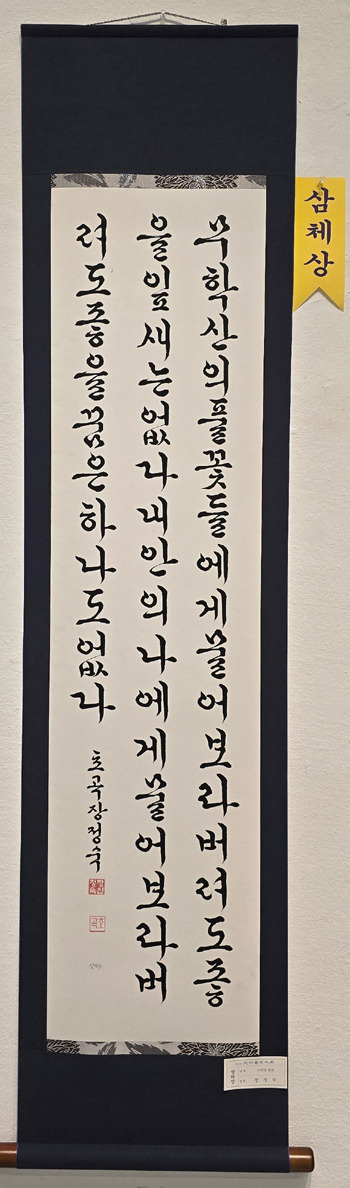 무학산의풀꽃들에게물어보라버려도좋
을잎새는없다내안의나에게물어보라버
려도좋을꿈은하나도없다
초곡장정숙
삼체상